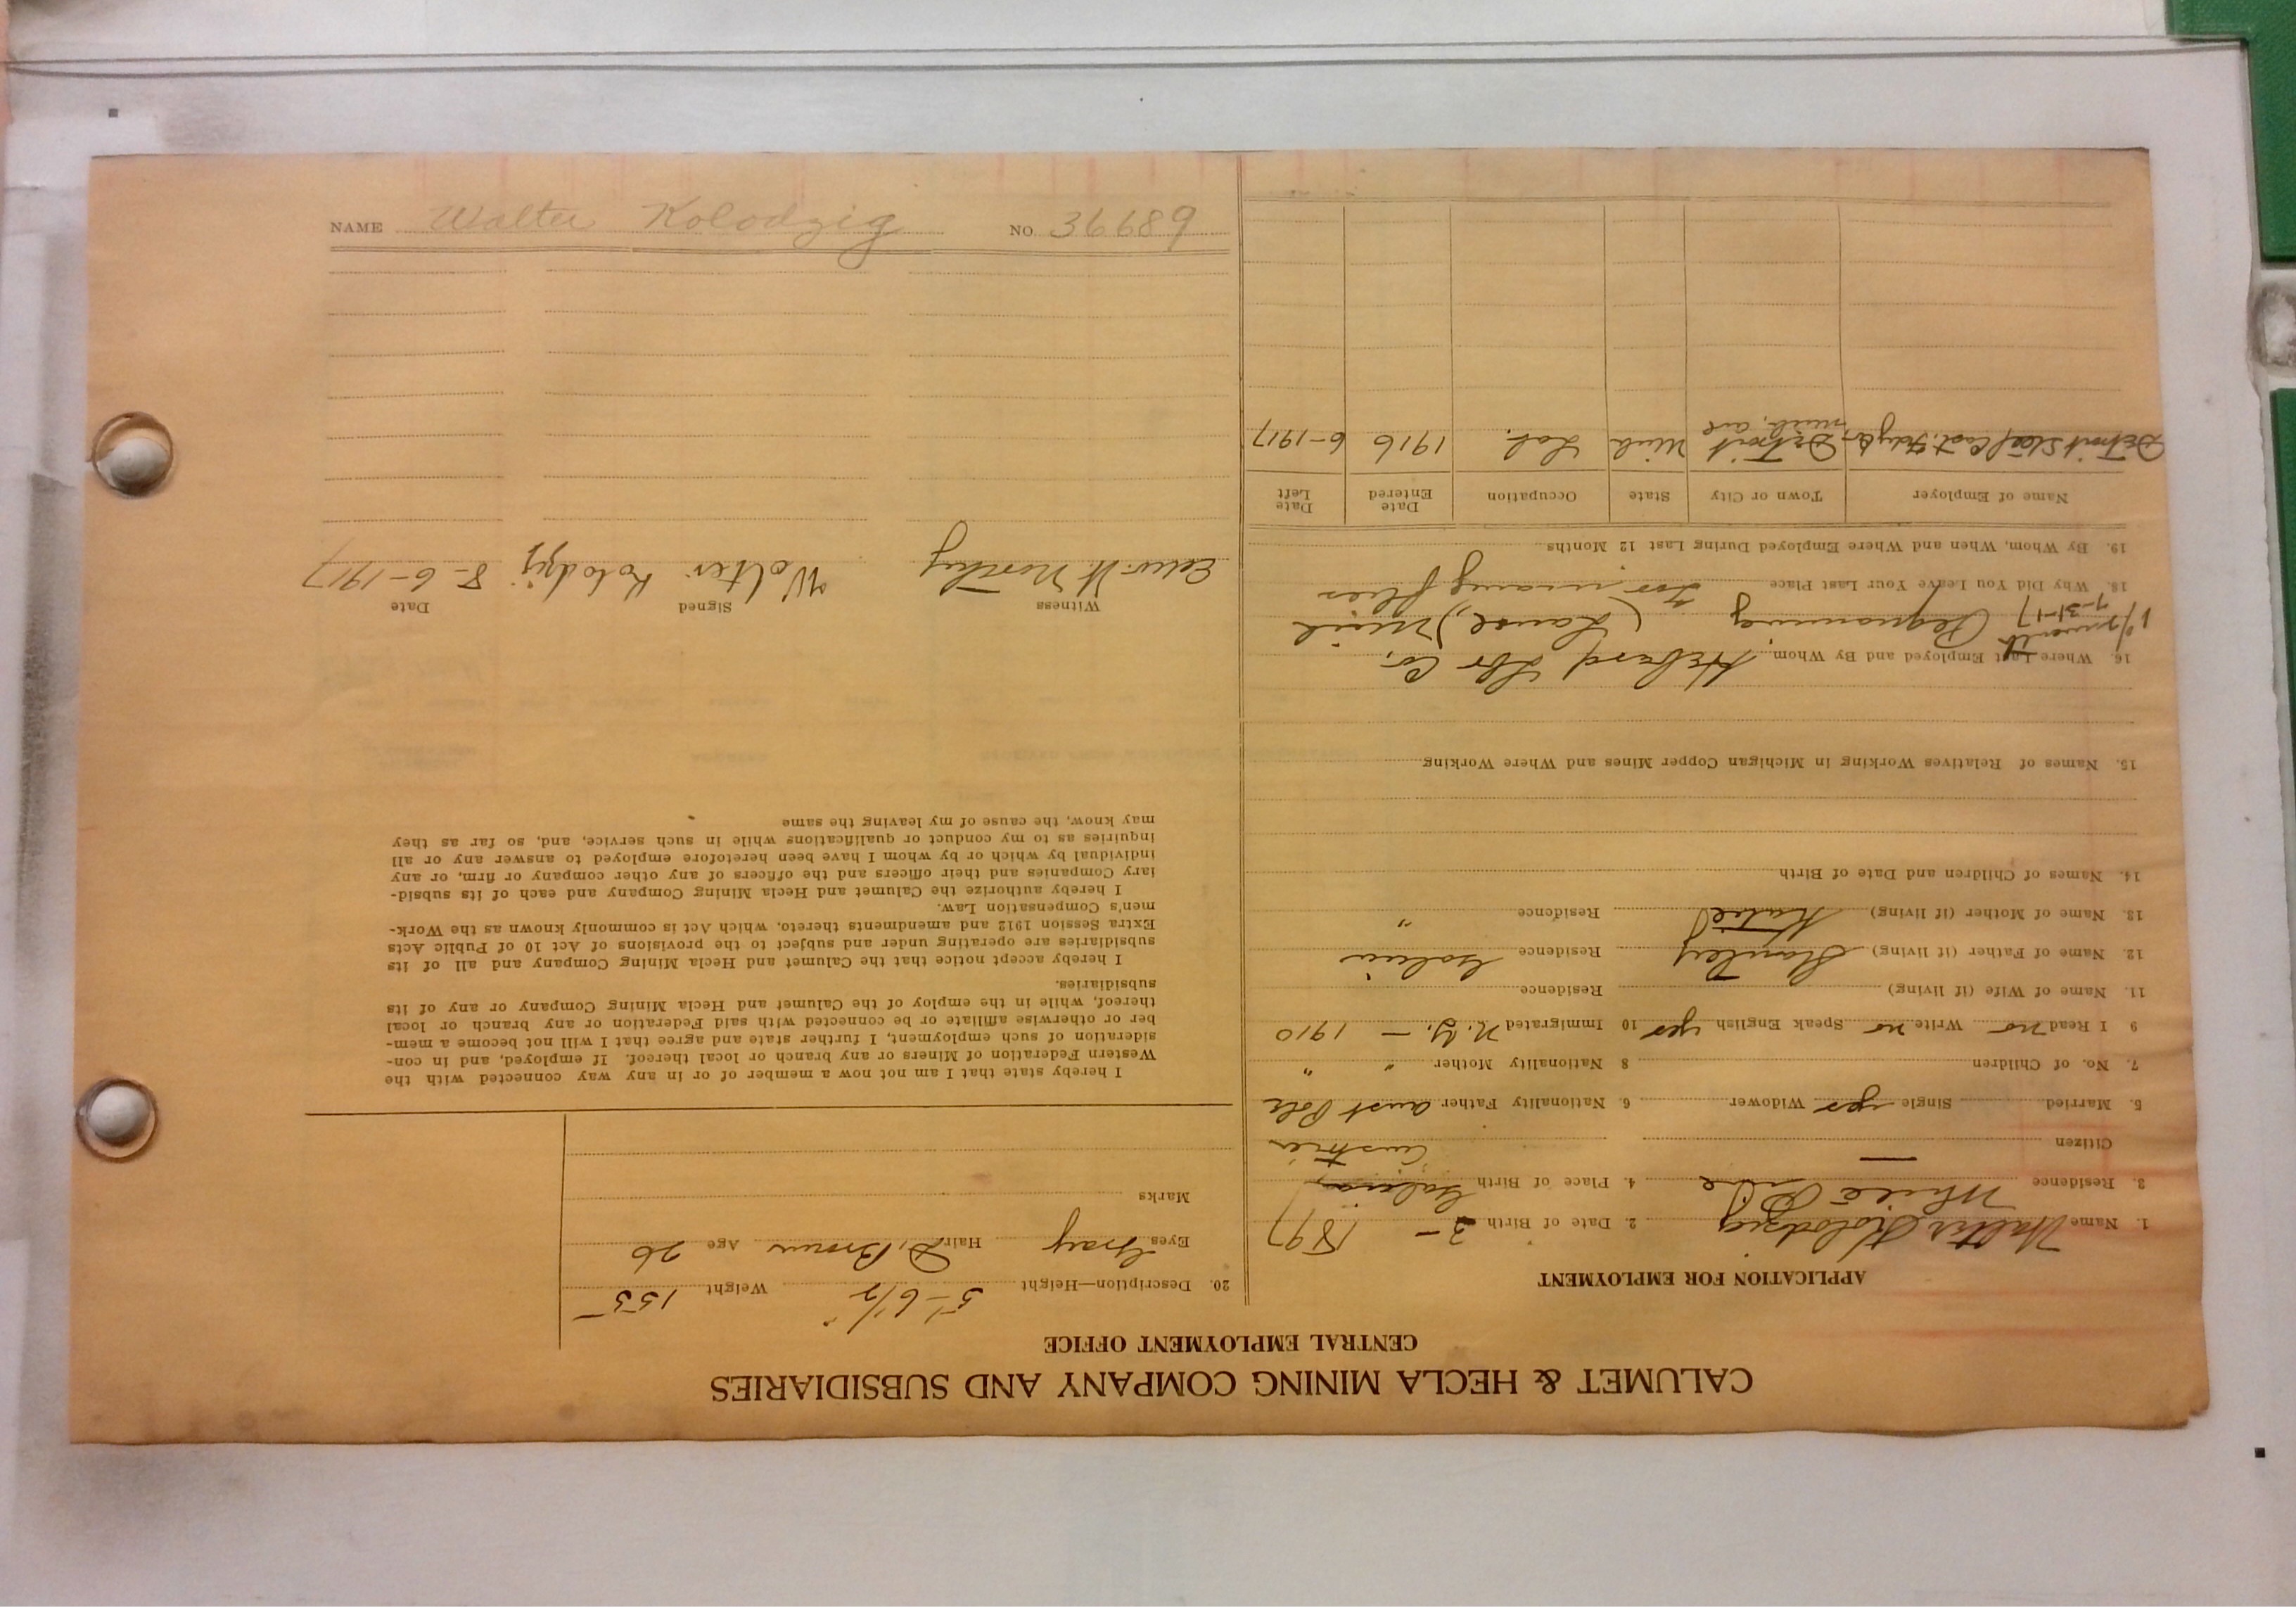 CALUMET & HECLA MINING COMPANY AND SUBSIDIARIES
CENTRAL EMPLOYMENT OFFICE
APPLICATION FOR EMPLOYMENT
1. Name Walter Kolodzig 2. Date of Birth 3- 1897
3. Residence White 4. Place of Birth Galicia,
Citizen — Austria
5. Married Single yes Widower 6. Nationality Father Aust Pole
7. No. of Children 8 Nationality Mother " "
9 I Read no Write no Speak English yes 10 Immigrated N.Y. - 1910
11. Name of Wife (if living) Residence
12. Name of Father (if living) Stanley Residence Galicia
13. Name of Mother (if living) Katie Residence "
14. Names of Children and Date of Birth
15. Names of Relatives Working in Michigan Copper Mines and Where Working
16. Where Last Employed and By Whom Hebard Lbr Co.
1 month Pequaming (Lanse,) Mich
7-31-17
18. Why Did You Leave Your Last Place Too many flies
19. By Whom, When and Where Employed During Last 12 Months
Name of Employer Town or City State Occupation Date Entered Date Left
Detroit Steel Cast. Detroit Mich Lab. 1916 6-1917
Mich. Ave
20. Description—Height 5-6 1/2" Weight 155
Eyes Gray Hair D. Brown Age 26
Marks
I hereby state that I am not now a member of or in any way connected with the
Western Federation of Miners or any branch or local thereof. If employed, and in con-
sideration of such employment, I further state and agree that I will not become a mem-
ber or otherwise affiliate or be connected with said Federation or any branch or local
thereof, while in the employ of the Calumet and Hecla Mining Company or any of its
subsidiaries.
I hereby accept notice that the Calumet and Hecla Mining Company and all of its
subsidiaries are operating under and subject to the provisions of Act 10 of Public Acts
Extra Session 1912 and amendments thereto, which Act is commonly known as the Work-
men's Compensation Law.
I hereby authorize the Calumet and Hecla Mining Company and each of its subsid-
iary Companies and their officers and the officers of any other company or firm, or any
individual by which or by whom I have been heretofore employed to answer any or all
inquiries as to my conduct or qualifications while in such service, and, so far as they
may know, the cause of my leaving the same
Witness Signed Date
Edw. H. Walter Kolodzij 8-6-1917
NAME Walter Kolodzig NO. 36689